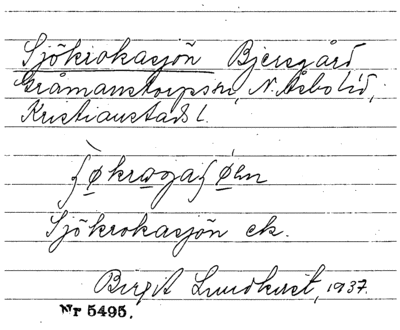 Sjökrokasjön Bjersgård
Gråmanstorps sn, N. Åsbo hd,
Kristianstads l.
ʃøkrogaʃøen
Sjökrokasjön ek.
Birgit Lundkvist, 1937.
Nr 5495.